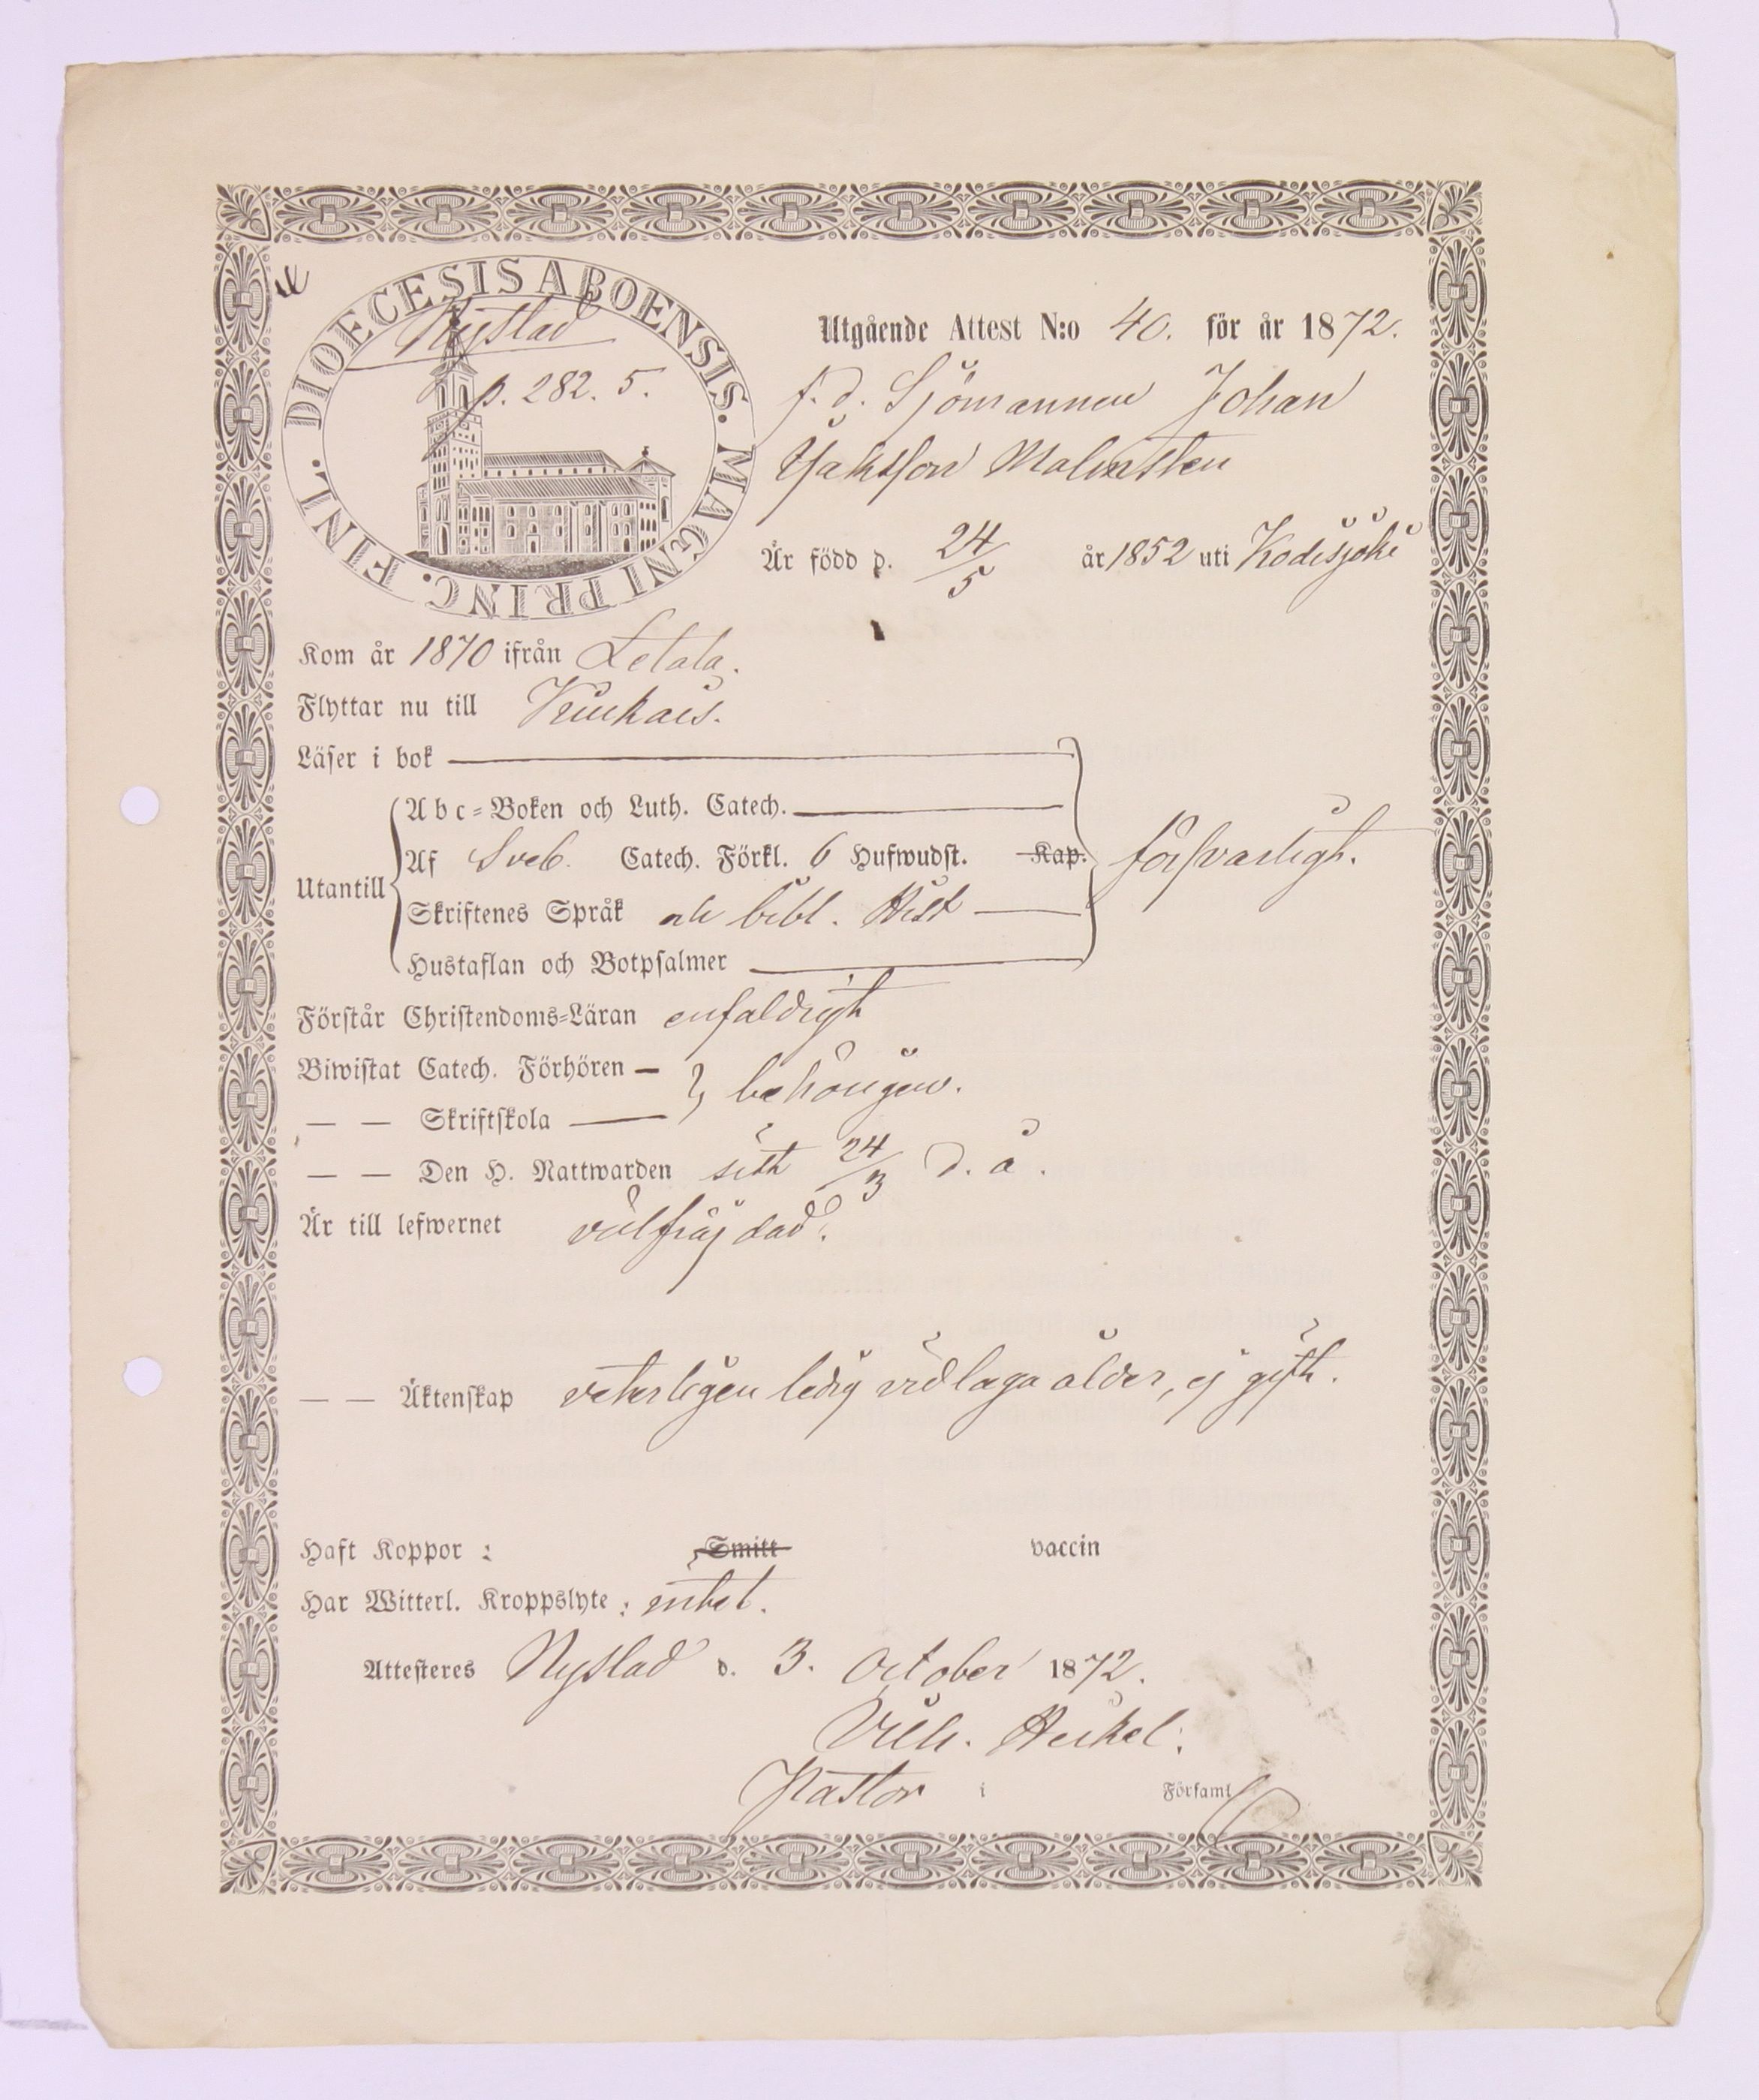 DIOECESIS ABOENSIS. MAGNI PRINC. FINL.
Nystad
p. 282. 5.
Utgående Attest N:o 40. för år 1872.
f. d. Sjömannen Johan
Jaksson Malmsten
Är född d. 24/5 år 1852 uti Kodisjoki
Kom år 1870 ifrån Letala.
Flyttar nu till
Läser i bok
Utantill
Abc-Boken och Luth. Catech.
Af Sveb. Catech. Förkl. 6 Hufwudst. Kap. försvarligt.
Skriftenes Språk och bibl. Hist
Hustaflan och Botpsalmer
Förstår Christendoms-Läran enfaldigt
Biwistat Catech. Förhören
— — Skriftskola
behörigen.
— — Den H. Nattwarden sist 24/3 d. å.
Är till lefwernet välfräjdad.
— — Äktenskap veterligen ledig vid laga ålder, ej gift.
Haft Koppor : Smitt vaccin
Har Witterl. Kroppslyte : intet.
Attesteres Nystad d. 3. October 1872.
Vilh. Heikel.
Pastor i Församl